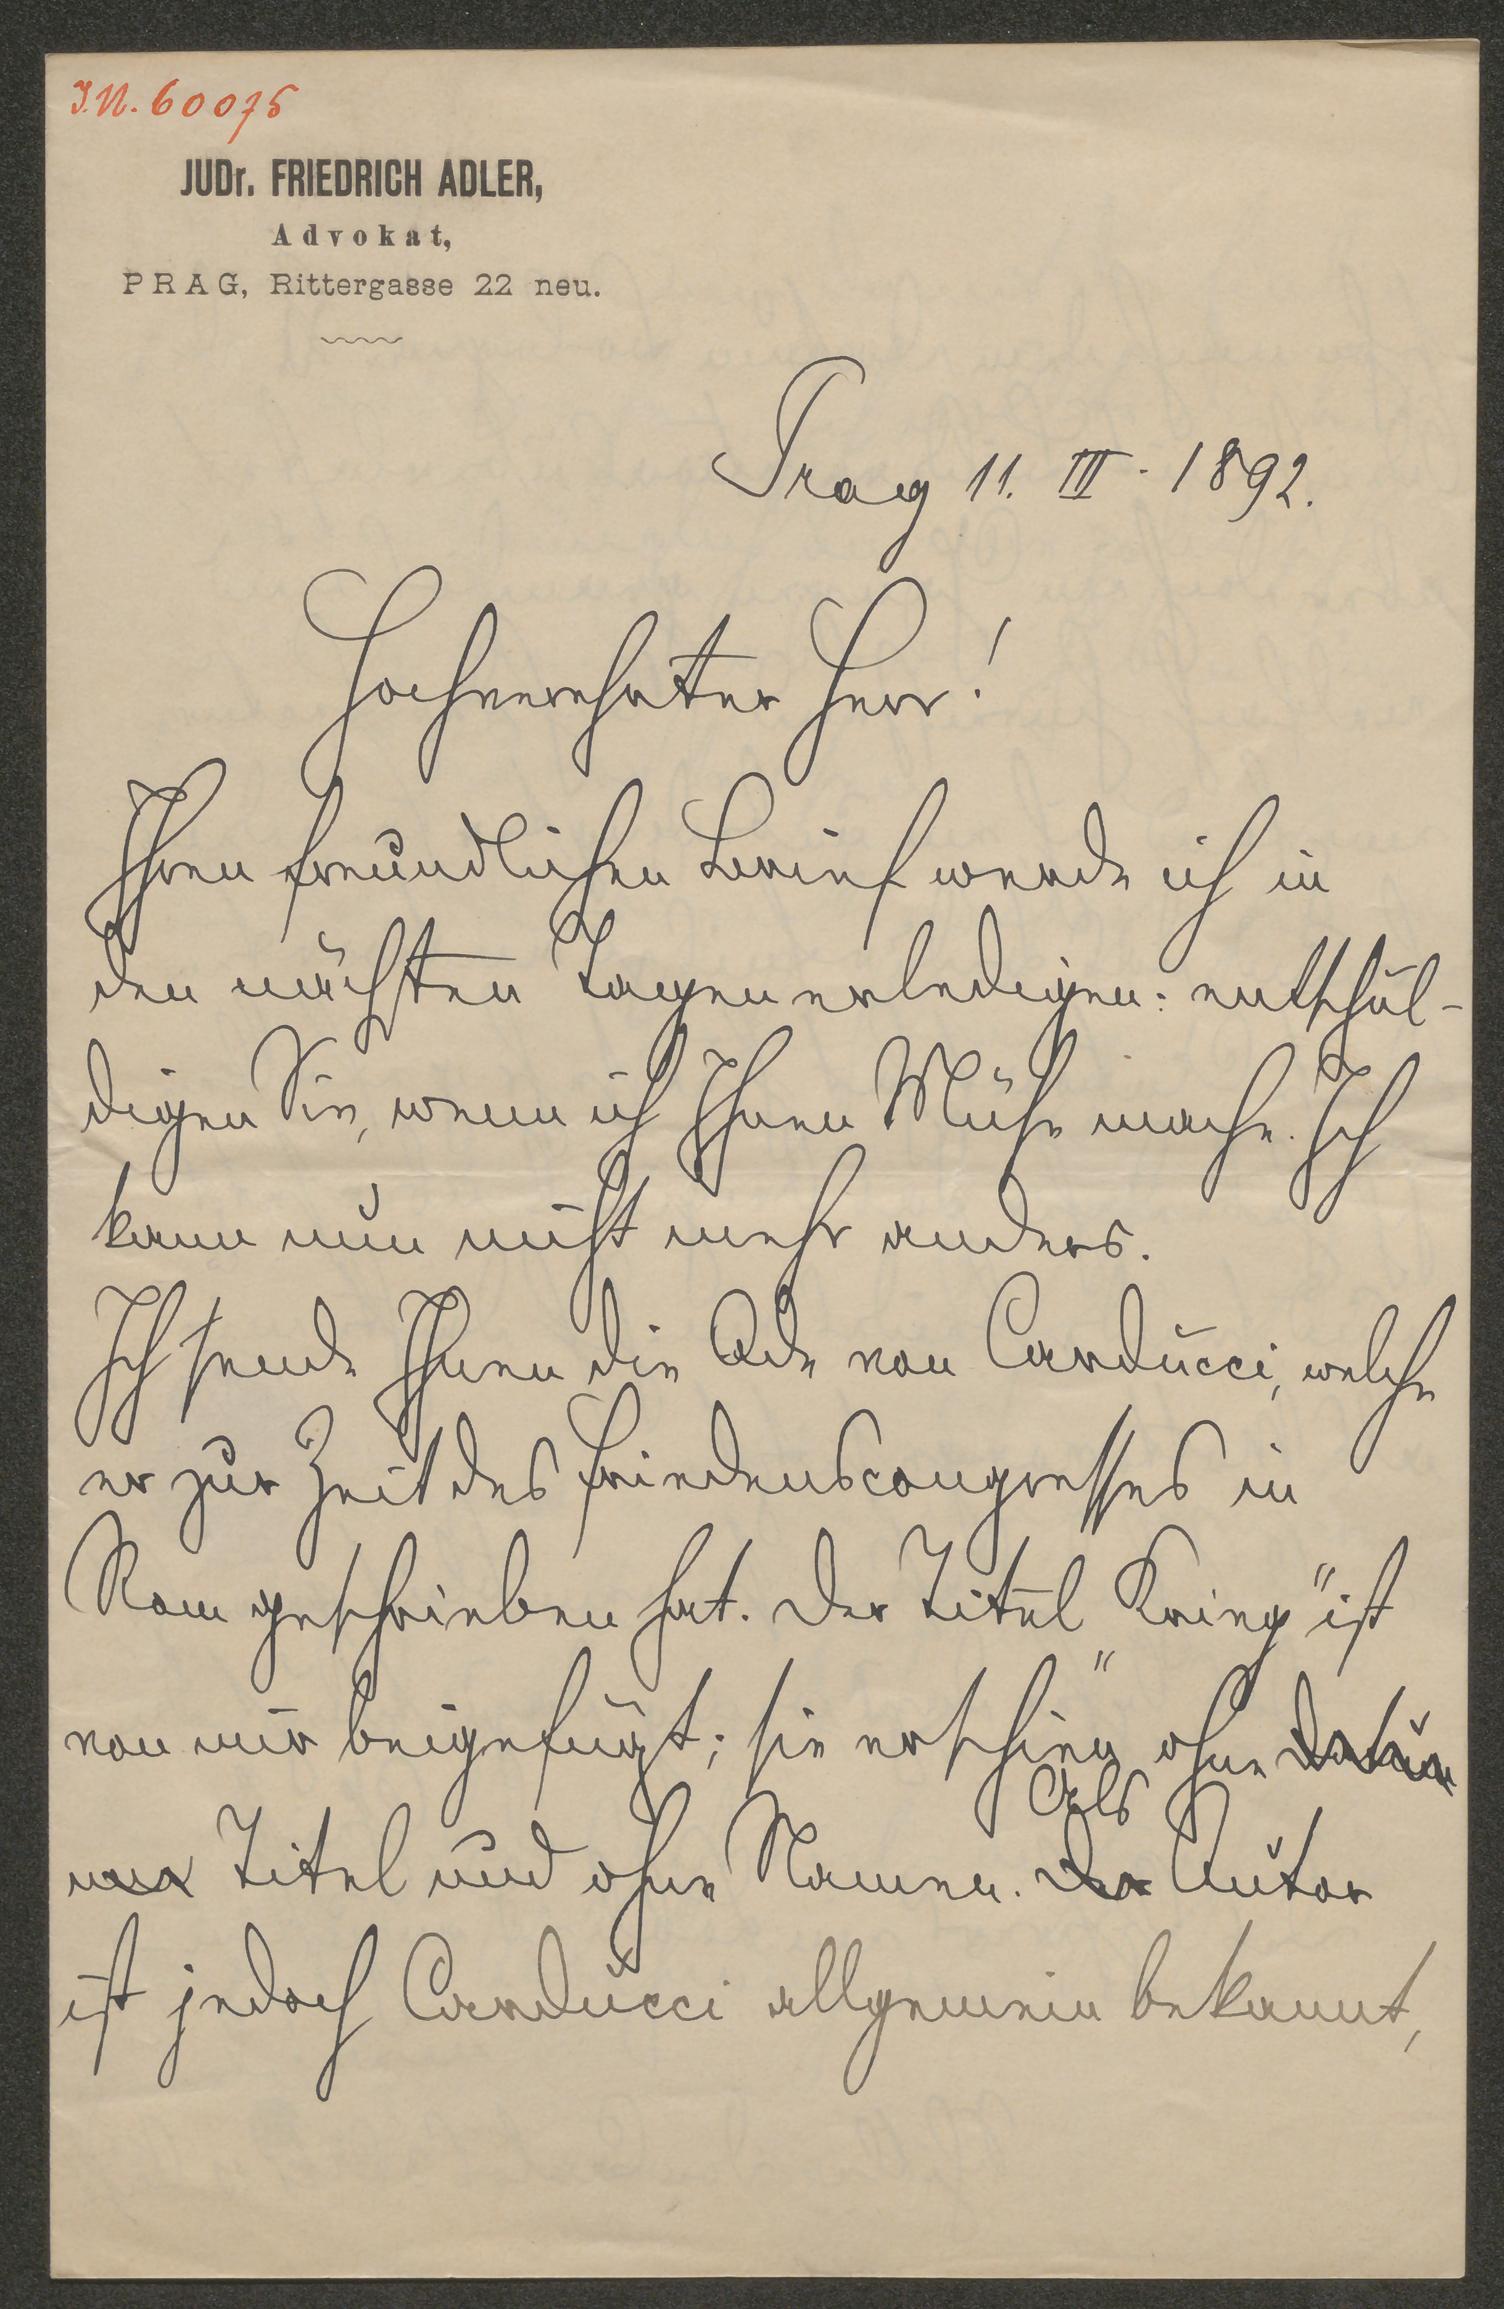 I.N. 60075
JUDr. FRIEDRICH ADLER,
Advokat,
PRAG, Rittergasse 22 neu.
Prag 11. III. 1892.
Hochverehrter Herr!
Ihren freundlichen Brief werde ich in
den nächsten Tagen erledigen: entschul-
digen Sie, wenn ich Ihnen Mühe mache. Ich
kann nun nicht mehr anders.
Ich sende Ihnen die Ode von Carducci, welche
er zur Zeit des Friedenscongresses in
Rom geschrieben hat. Der Titel „Krieg" ist
von mir beigefügt; sie erschien ohne
Titel und ohne Namen. Der Als Autor
ist jedoch Carducci allgemein bekannt,